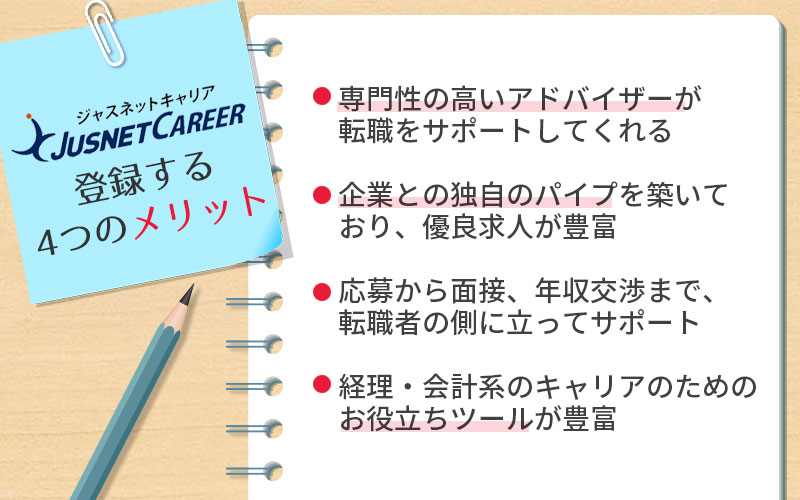 ジャスネットキャリア
JUSNETCAREER
登録する
4つのメリット
専門性の高いアドバイザーが
転職をサポートしてくれる
企業との独自のパイプを築いて
おり、優良求人が豊富
応募から面接、年収交渉まで、
転職者の側に立ってサポート
経理・会計系のキャリアのための
お役立ちツールが豊富